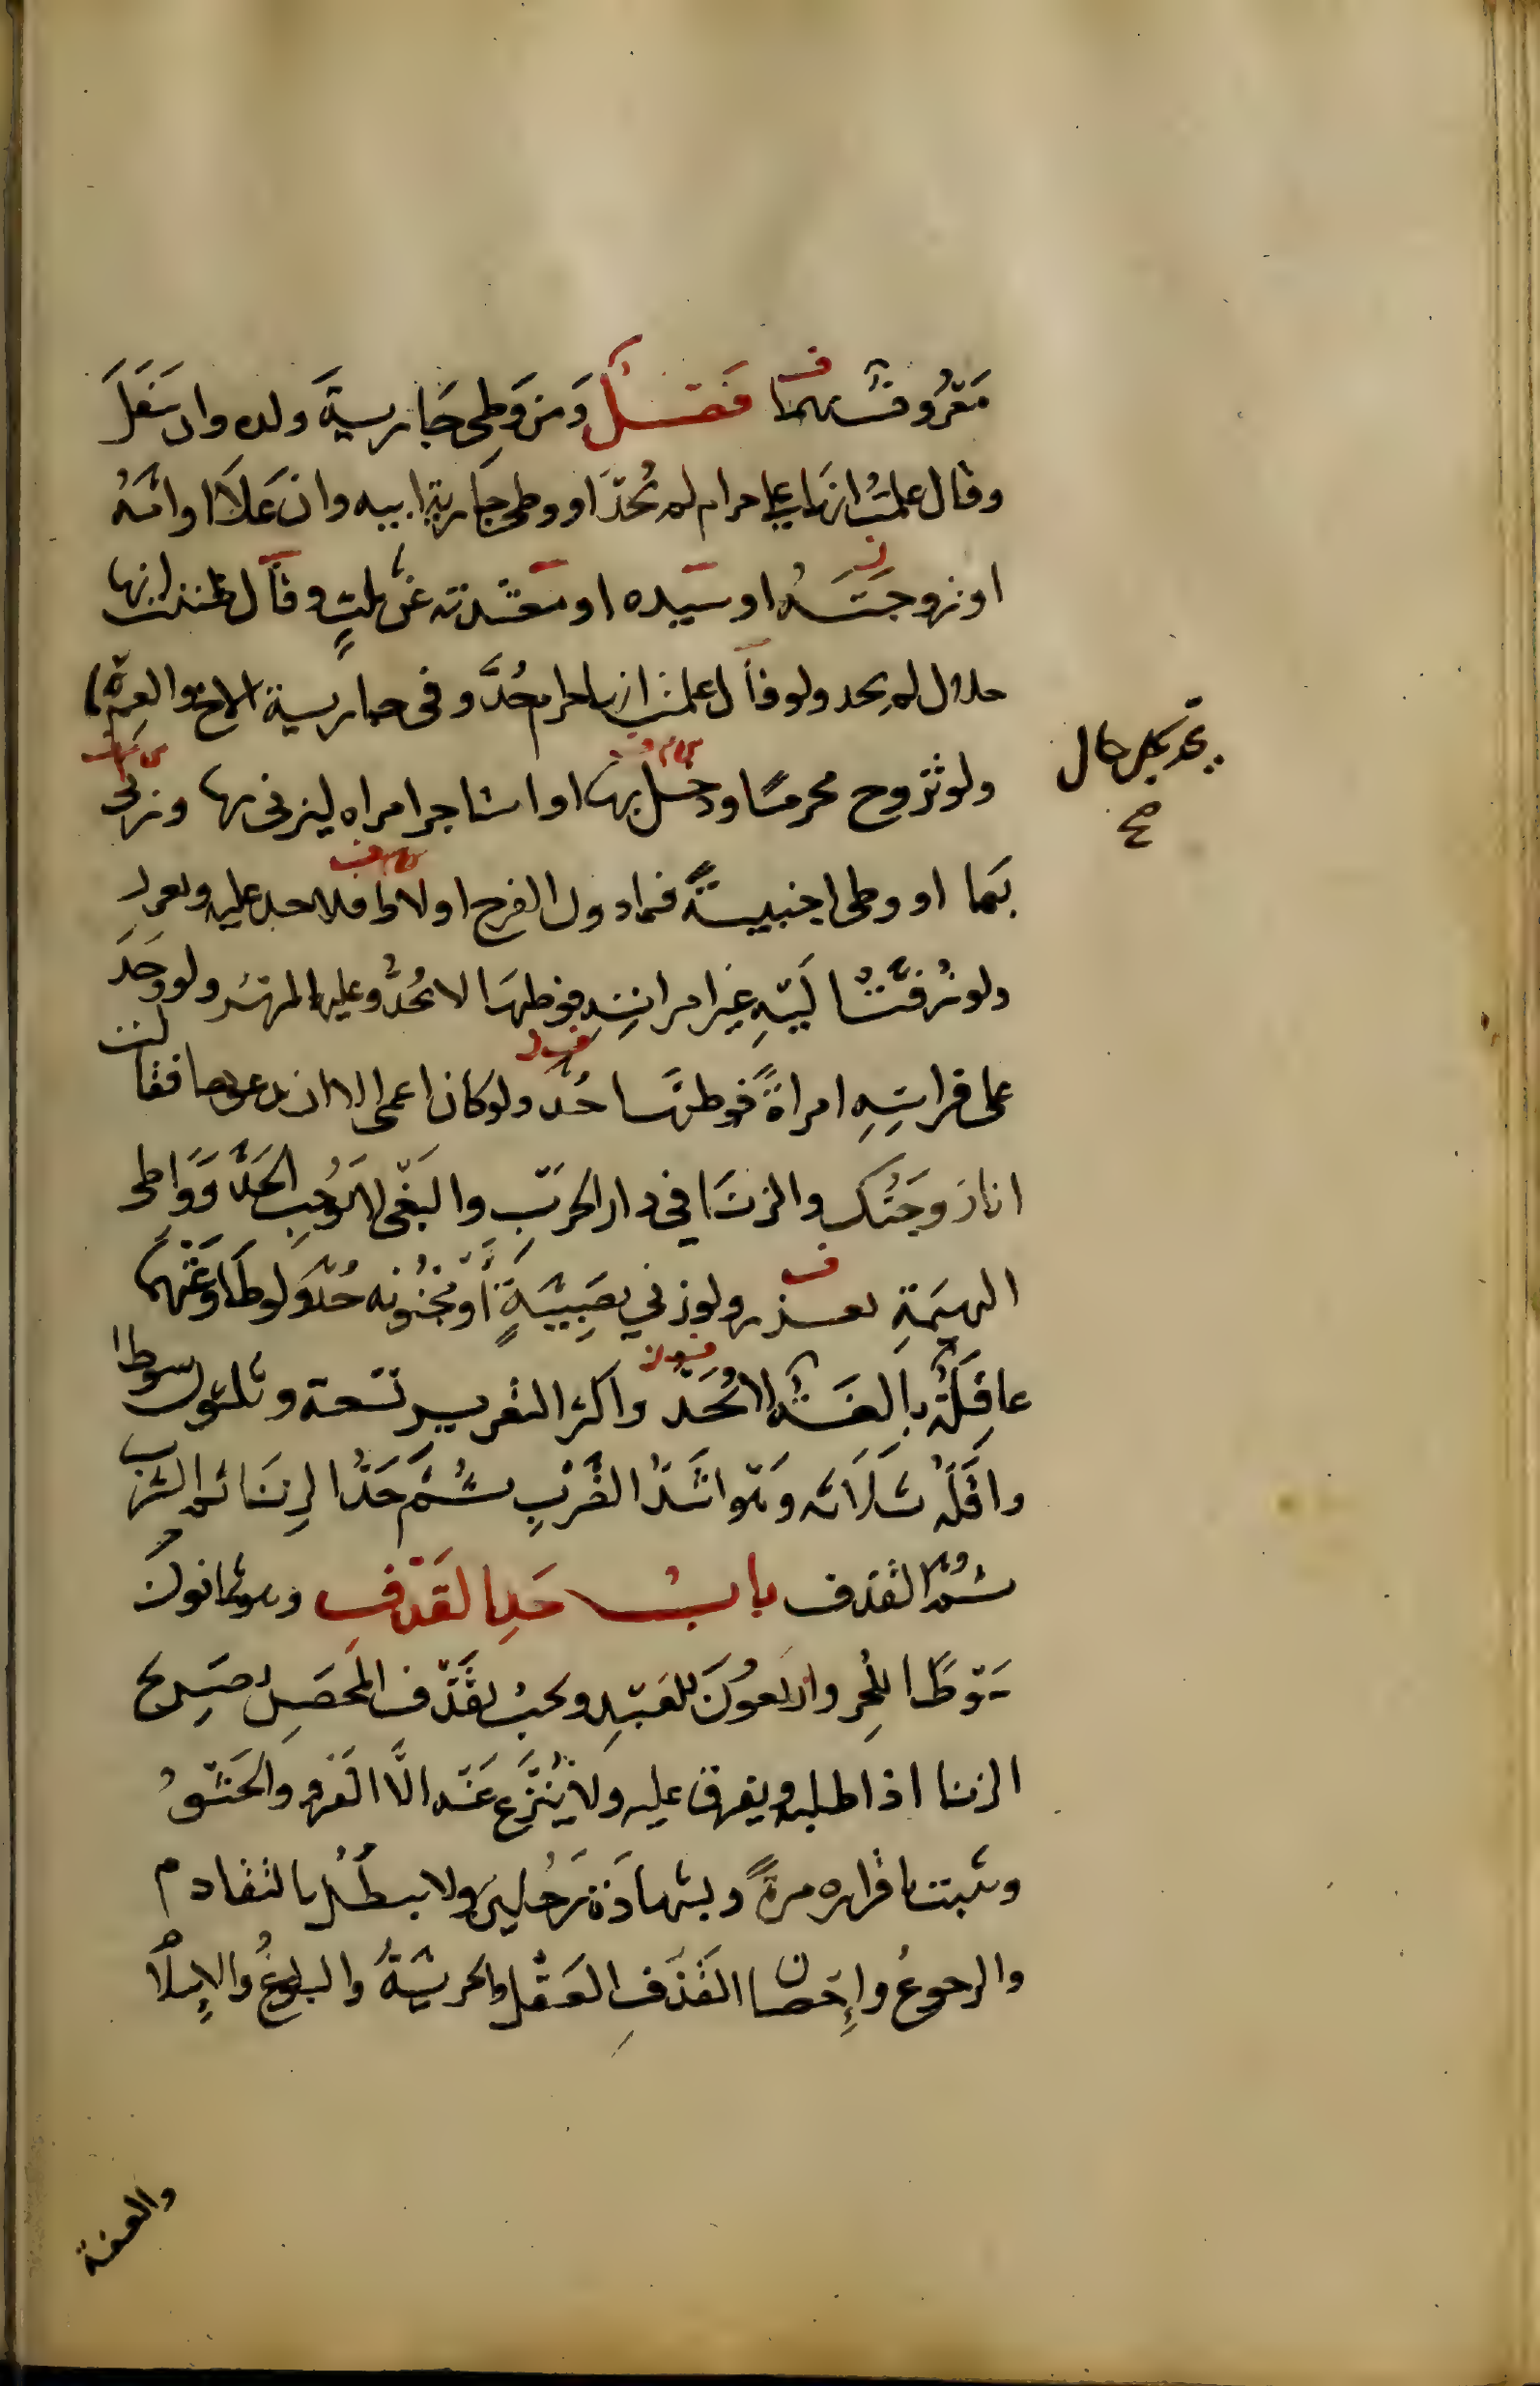 معروفتهما فصل ومن وطئ جارية ولده وان سفل
وقال علمت انها علي حرام لم يحد او وطئ جارية ابيه وان علا او امه
او زوجته او سيده او معتدته عن ثلث وقال ظننت انها
حلال لم يحد ولو قال علمت انها حرام حد وفي جارية الاخ والعم
يحد بكل حال
صح
ولو تزوج محرما ودخل بها او استاجر امراه ليزني بها وزنى
بها او وطئ اجنبية فيما دون الفرج او لاط فلا حد عليه ويعزر
ولو زفت اليه غير امراته فوطئها لا يحد وعليه المهر ولو وجد
على فراشه امراة فوطئها حد ولو كان اعمى الا ان يدعوها فقالت
انا زوجتك والزنا في دار الحرب والبغي لا يوجب الحد وواطئ
البهيمة يعزر ولو زني بصبية او مجنونه حد ولو طاوعتهما
عاقلة بالغة لا تحد واكثر التعزير تسعة وثلثون سوطا
واقله ثلاثه وهو اشد الضرب ثم حد الزنا ثم الشرب
ثم القذف باب حد القذف وهو ثمانون
سوطا للحر واربعون للعبد ويجب بقذف المحصن بصريح
الزنا اذا طلبه ويفرق عليه ولا ينزع عنه الا الفرو والحشو
ويثبت باقراره مرة وبشهادة رجلين ولا يبطل بالتقادم
والرجوع واحصان القذف العقل والحرية والبلوغ والاسلا
والعفة